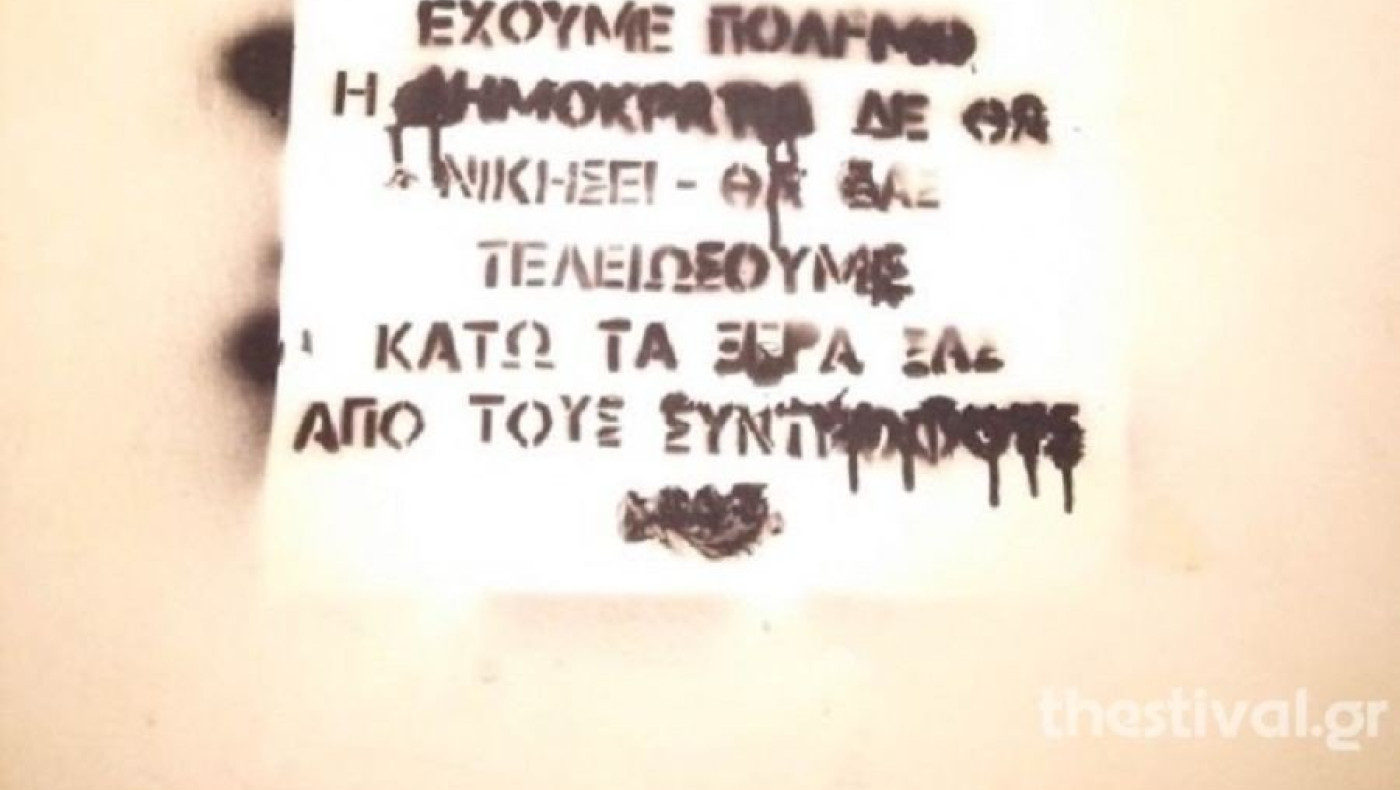 ΕΧΟΥΜΕ ΠΟΛΕΜΟ
Η ΔΗΜΟΚΡΑΤΙΑ ΔΕ ΘΑ
ΝΙΚΗΣΕΙ - ΘΑ ΣΑΣ
ΤΕΛΕΙΩΣΟΥΜΕ
ΚΑΤΩ ΤΑ ΞΕΡΑ ΣΑΣ
ΑΠΟ ΤΟΥΣ ΣΥΝΤΡΟΦΟΥΣ
ΜΑΣ
thestival.gr